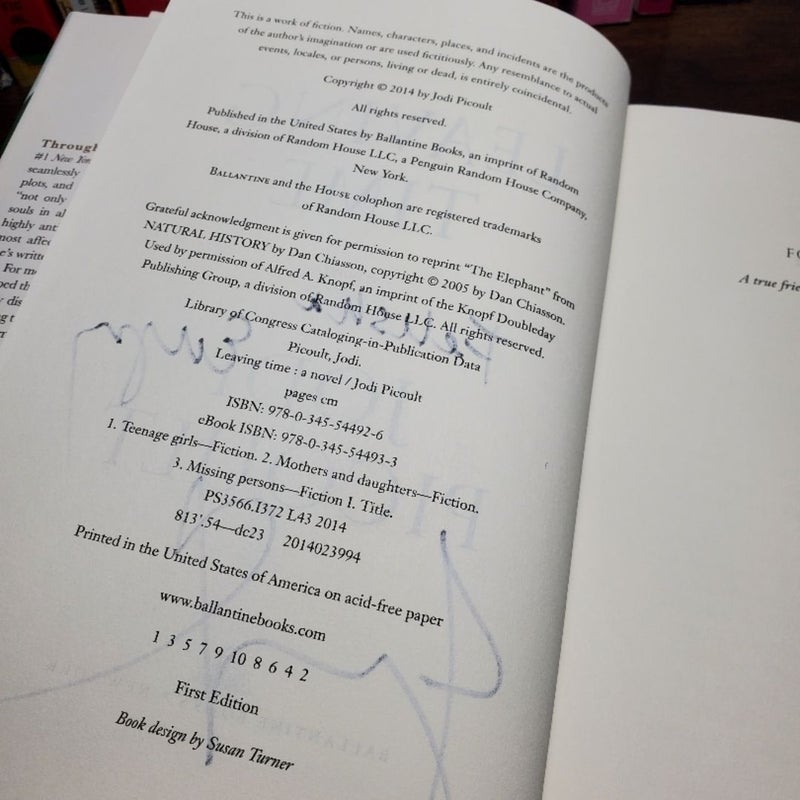 This is a work of fiction. Names, characters, places, and incidents are the products
of the author's imagination or are used fictitiously. Any resemblance to actual
events, locales, or persons, living or dead, is entirely coincidental.
Copyright © 2014 by Jodi Picoult
All rights reserved.
Published in the United States by Ballantine Books, an imprint of Random
House, a division of Random House LLC, a Penguin Random House Company,
New York.
BALLANTINE and the HOUSE colophon are registered trademarks
of Random House LLC.
Grateful acknowledgment is given for permission to reprint "The Elephant" from
NATURAL HISTORY by Dan Chiasson, copyright © 2005 by Dan Chiasson.
Used by permission of Alfred A. Knopf, an imprint of the Knopf Doubleday
Publishing Group, a division of Random House LLC. All rights reserved.
Library of Congress Cataloging-in-Publication Data
Picoult, Jodi.
Leaving time : a novel / Jodi Picoult
pages cm
ISBN: 978-0-345-54492-6
eBook ISBN: 978-0-345-54493-3
1. Teenage girls—Fiction. 2. Mothers and daughters—Fiction.
3. Missing persons—Fiction I. Title.
PS3566.I372 L43 2014
813'.54—dc23 2014023994
Printed in the United States of America on acid-free paper
www.ballantinebooks.com
1 3 5 7 9 10 8 6 4 2
First Edition
Book design by Susan Turner
Through
#1 New
seamlessly
plots, and
"not only
souls in
highly
most
For
A true